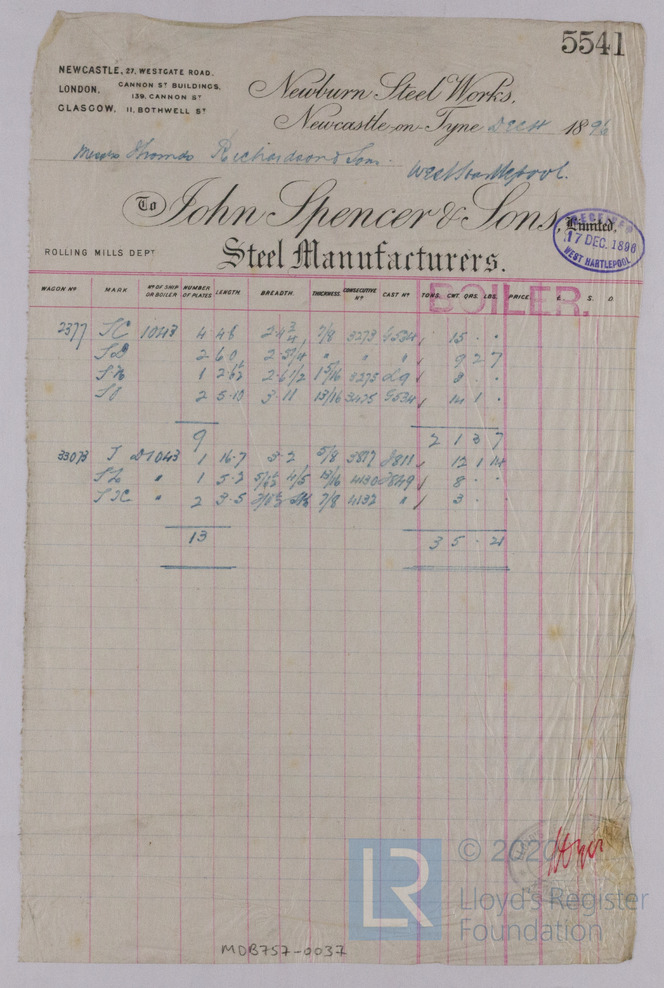 5541
NEWCASTLE, 27, WESTGATE ROAD.
LONDON. CANNON ST BUILDINGS, 139, CANNON ST
GLASGOW. 11, BOTHWELL ST
Newburn Steel Works,
Newcastle-on-Tyne Dec 1896
Messrs Thomas Richardson & Sons.
West Hartlepool.
To John Spencer & Sons, Limited,
RECEIVED 17 DEC. 1896 WEST HARTLEPOOL
ROLLING MILLS DEPT Steel Manufacturers.
BOILER.
WAGON No MARK No OF SHIP OR BOILER NUMBER OF PLATES LENGTH. BREADTH. THICKNESS. CONSECUTIVE No CAST No TONS. CWT. QRS. LBS. PRICE. £. S. D.
2377 1043 4 4·8 2·4 3/4 7/8 3273 15 · ·
2 6·0 " " " 9 2 7
1 3275 8 · ·
2 5·10 3·11 13/16 3475 14 1 ·
9 2 1 3 7
33073 J 1043 1 16·7 3·2 5/8 3817 12 1 14
" 1 5·2 13/16 8 · ·
" 2 3·5 7/8 4132 " 3 · ·
13 3 5 · 21
© 2020
LR
Lloyd's Register
Foundation
MDB757-0037